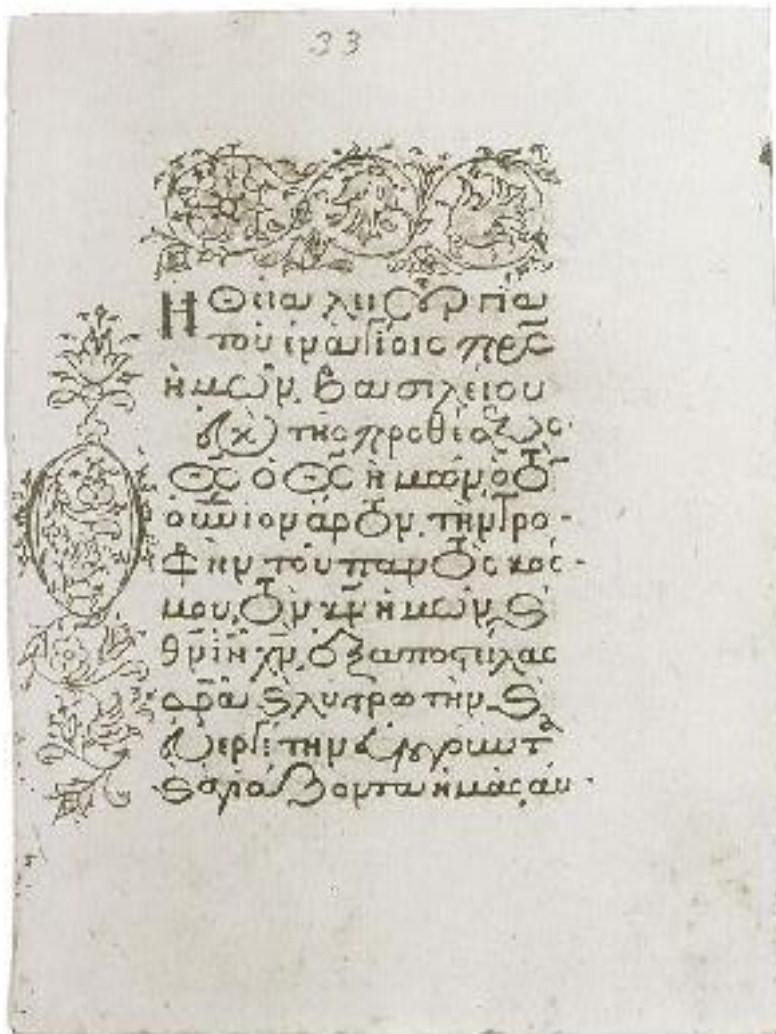 33
Ἡ θεία λειτουργία
τοῦ ἐν ἁγίοις πρς
ἡμῶν, Βασιλείου
εὐχὴ τῆς προθέσεως
Θς ὁ Θς ἡμῶν, ὁ τὸν
οὐνιον ἄρτον, τὴν τρο-
φὴν τοῦ παντὸς κόσ-
μου, τὸν κν ἡμῶν, καὶ
θν ιν χν, ἐξαποστείλας
σρα καὶ λυτρωτὴν, καὶ
εὐεργέτην εὐλογοῦντα
καὶ ἁγιάζοντα ἡμᾶς, αὐ-